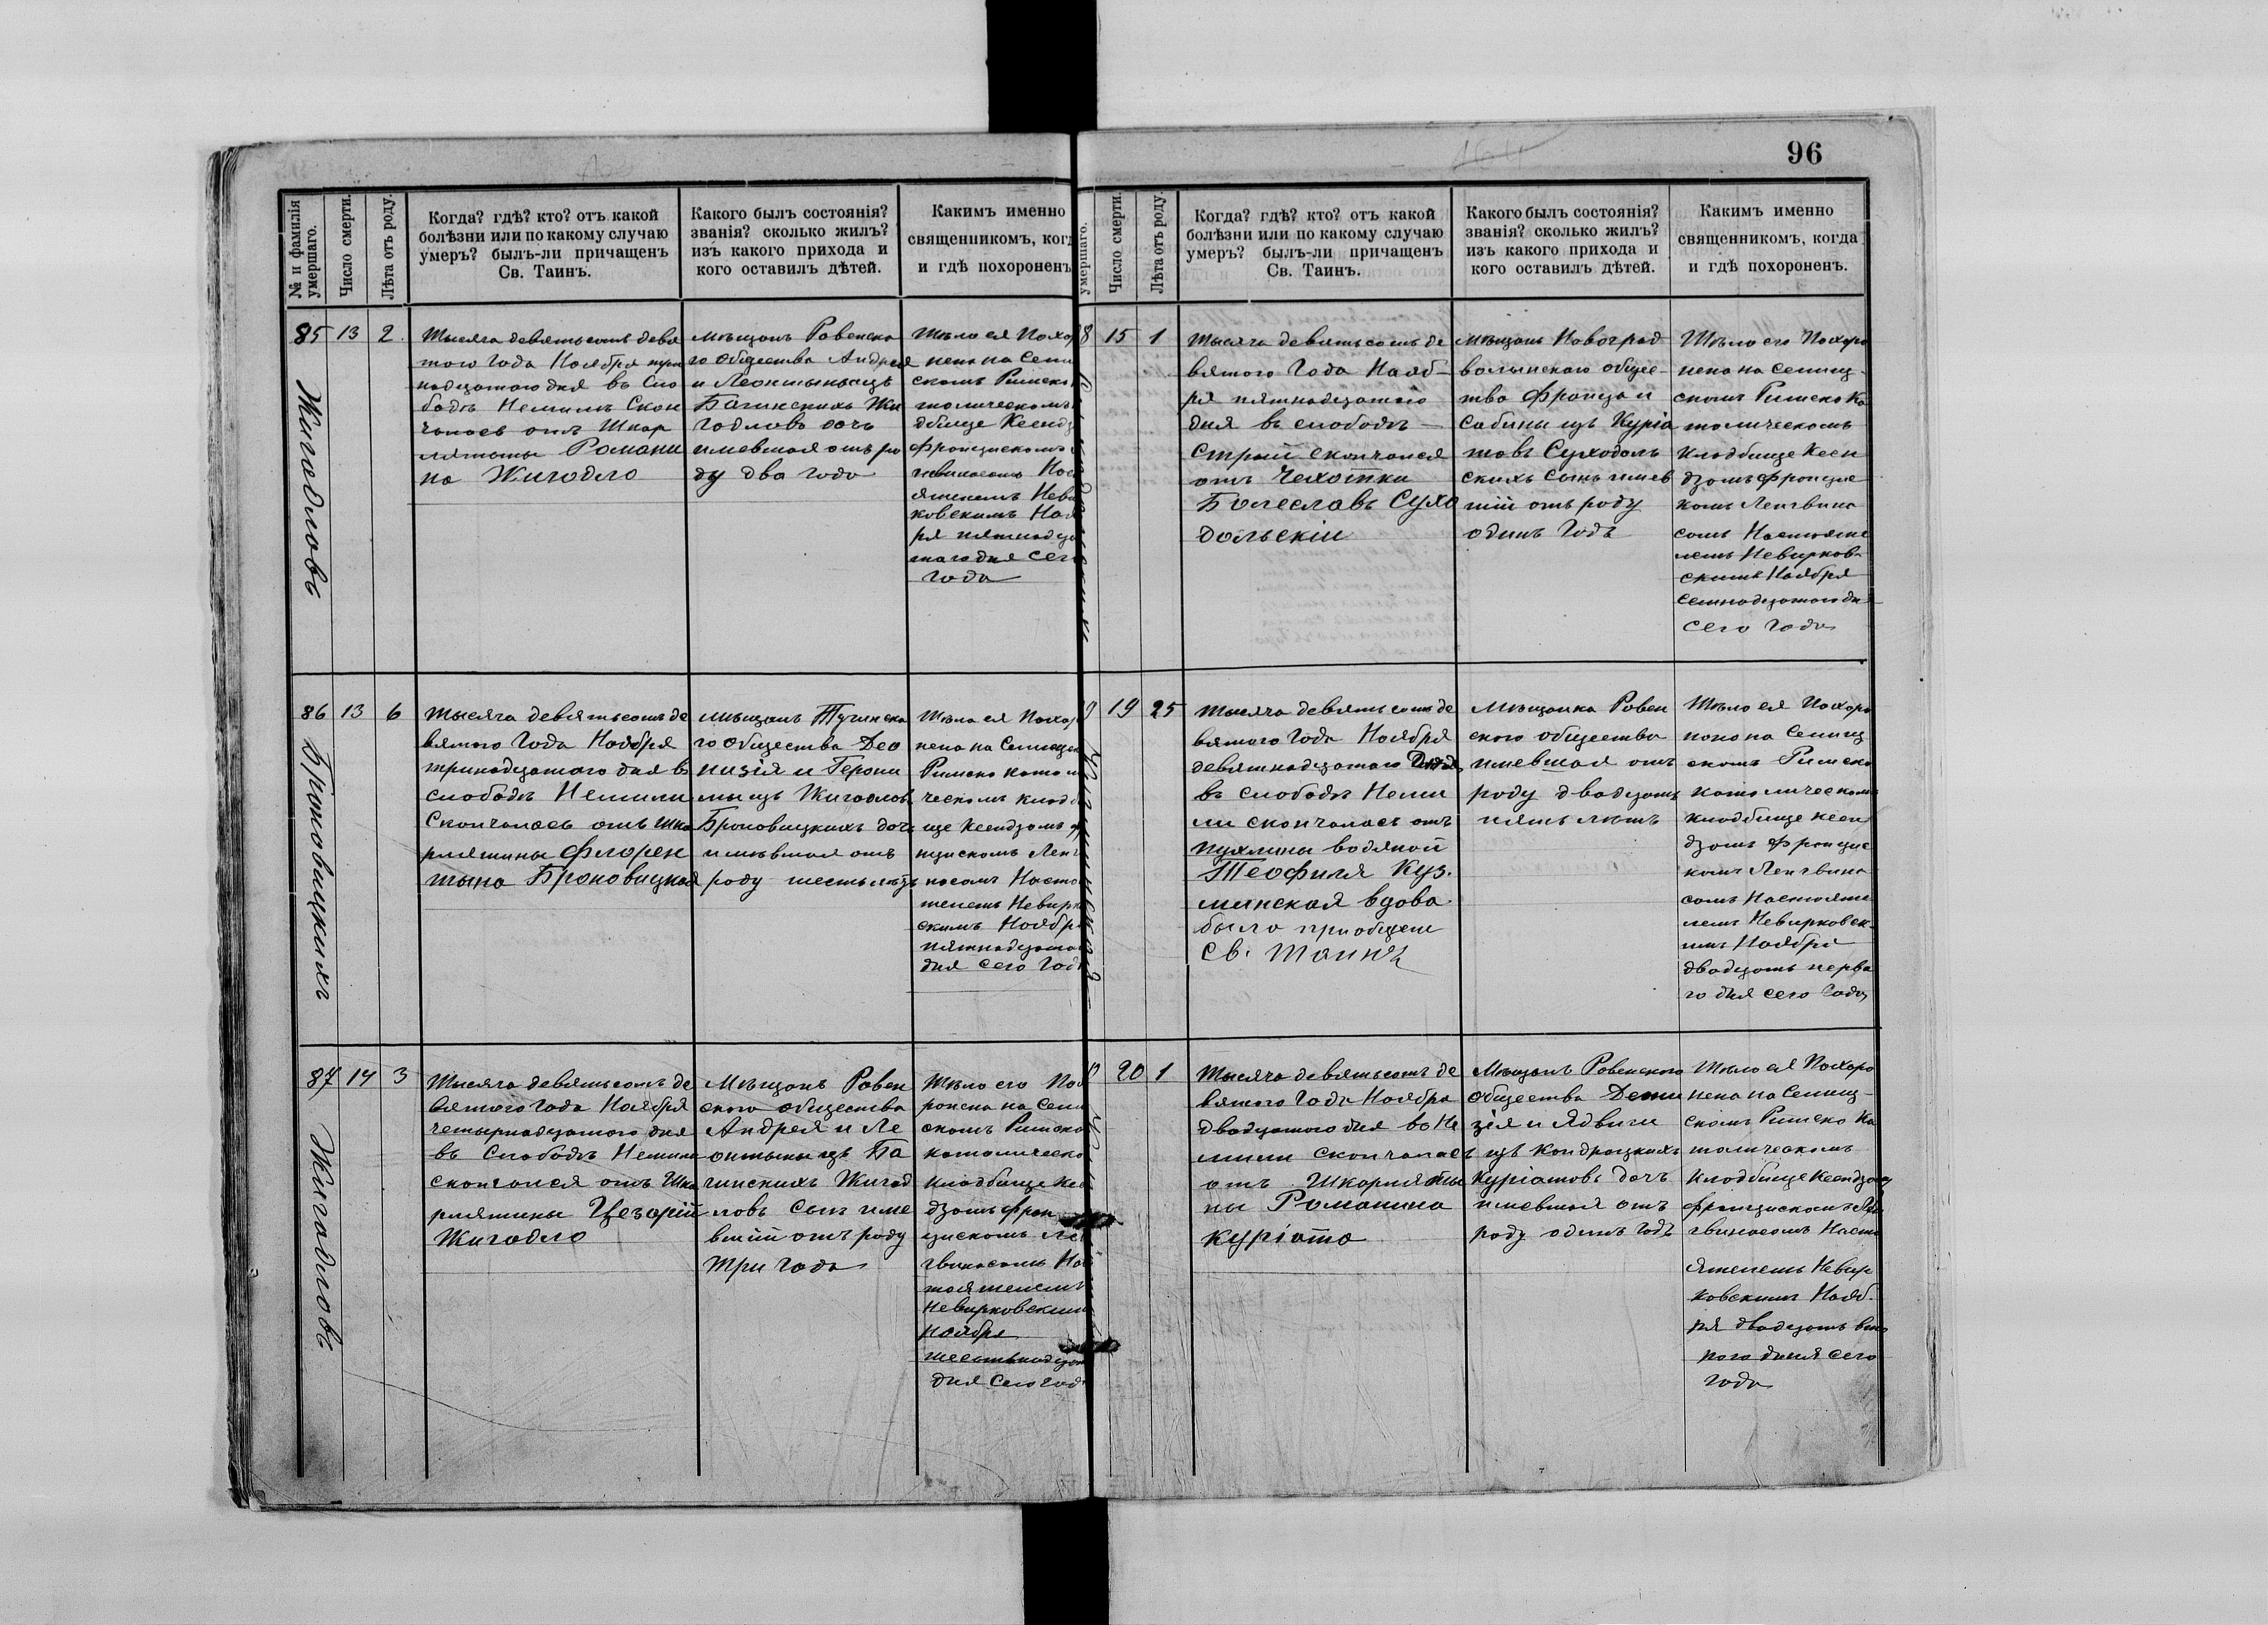 96
№ и фамилія умершаго.
Число смерти.
Лѣта отъ роду.
Когда? гдѣ? кто? отъ какой
болѣзни или по какому случаю
умеръ? былъ-ли причащенъ
Св. Таинъ.
Какого былъ состоянія?
званія? сколько жилъ?
изъ какого прихода и
кого оставилъ дѣтей.
Каким именно
священникомъ, когд
и гдѣ похороненъ
85 13 2
Жигодловъ
Тысяча девятьсотъ девя
того Года Ноября трина
надцатого дня въ Сло
бодѣ Немили Скон
чалась отъ Шкар
лятыны Романи
на Жигодло
мѣщанъ Ровенска
го общества Андрея
и Леонтыны изъ
Багинскихъ Жи
годловъ дочь
имевшая отъ ро
ду два года
Тѣло ея Похор
нена на Сели
скомъ Римско
толическомъ
дбище Ксендз
Францискомъ
гвинасомъ Нас
ятелемъ Неви
ковскимъ Ноя
ря пятнадца
таго дня сего
года
86 13 6
Броновицкихъ
Тысяча девятьсотъ де
вятого Года Ноября
тринадцатого дня въ
слободѣ Немили
Скончалась отъ шка
рлятины Флорен
тына Броновицкая
мѣщанъ Тучинска
го общества Део
низія и Герони
мы изъ Жигодлов
Броновицкихъ дочь
имѣвшая отъ
роду шесть лѣтъ
Тѣло ея Похор
нена на Селищск
Римско като
ческомъ кладб
ще Ксендзомъ Ф
нцискомъ Лен
насомъ Насто
телемъ Невирк
скимъ Ноября
пятнадцатого
дня сего Года
87 14 3
Жигодловъ
Тысяча девятьсотъ де
вятого Года Ноября
четырнадцатого дня
въ Слободѣ Немили
скончался отъ Шка
рлятины Цезарій
Жигодло
Мѣщанъ Ровен
ского общества
Андрея и Ле
онтыны изъ Ба
гинскихъ Жигод
ловъ сынъ име
вшій отъ роду
три года
Тѣло его Пох
ронена на Сели
скомъ Римско
католическо
кладбище Ксе
дзомъ Фран
цискомъ Лен
гвинасомъ Нас
тоятелемъ
Невирковским
Ноября
шестьнадцат
дня сего года
умершаго.
Число смерти.
Лѣта отъ роду.
Когда? гдѣ? кто? отъ какой
болѣзни или по какому случаю
умеръ? былъ-ли причащенъ
Св. Таинъ.
Какого былъ состоянія?
званія? сколько жилъ?
изъ какого прихода и
кого оставилъ дѣтей.
Каким именно
священникомъ, когда
и гдѣ похороненъ.
8 15 1
Тысяча девятьсотъ де
вятого Года Нояб-
ря пятнадцатого
дня въ слободѣ
Стрый скончался
отъ Чахотки
Болеславъ Сухо
дольскій
мѣщанъ Новоград
волынскаго общес-
тва Франца и
Сабины изъ Курія
товъ Суходоль
скихъ сынъ имев
шій отъ роду
одинъ Годъ
Тѣло его Похоро
нена на Селищ-
скомъ Римско Ка
толическомъ
Кладбище Ксен
дзомъ Францис
комъ Ленгвина
сомъ Настояте
лемъ Невирков-
скимъ Ноября
семнадцатого дня
сего Года
9 19 25
Тысяча девятьсотъ де
вятого Года Ноября
девятнадцатого Дня
въ слободѣ Неми
ли скончалась отъ
пухлины водяной
Теофиля Куз.
минская вдова
была приобщена
Св. Таинъ
Мѣщанка Ровен
ского общества
имевшая отъ
роду двадцать
пять лѣтъ
Тѣло ея Похоро
нено на Селищ
скомъ Римско
католическомъ
кладбище Ксен
дзомъ Францис
комъ Ленгвина
сомъ Настояте
лемъ Невирковск
имъ Ноября
двадцать перва
го дня сего Года
0 20 1
Тысяча девятьсотъ де
вятого Года Ноября
двадцатого дня въ Не
мили скончалась
отъ Шкарляты
ны Романина
Куріята
Мѣщанъ Ровенского
общества Дени
зія и Ядвиги
изъ Кондрацкихъ
Куріятовъ дочь
имевшая отъ
роду одинъ годъ
Тѣло ея Похоро
нена на Селищ-
скомъ Римско Ка
толическомъ
Кладбище Ксендзомъ
Францискомъ Лен
гвинасомъ Насто
ятелемъ Невир
ковскимъ Нояб.
ря двадцать вто
рого дня сего
года